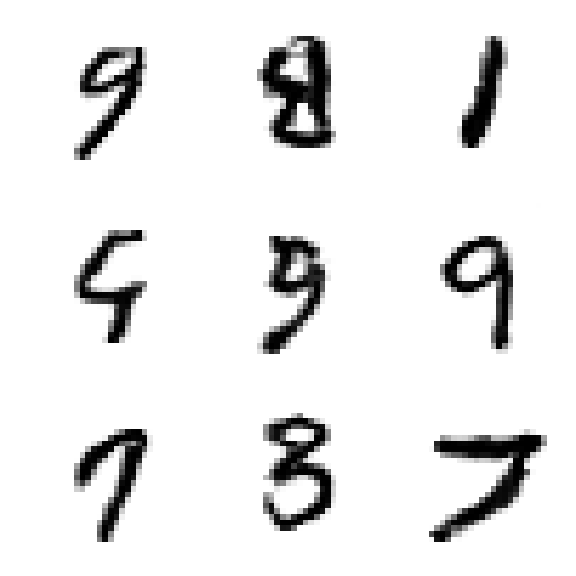 9 8 1
5 9 9
7 3 7